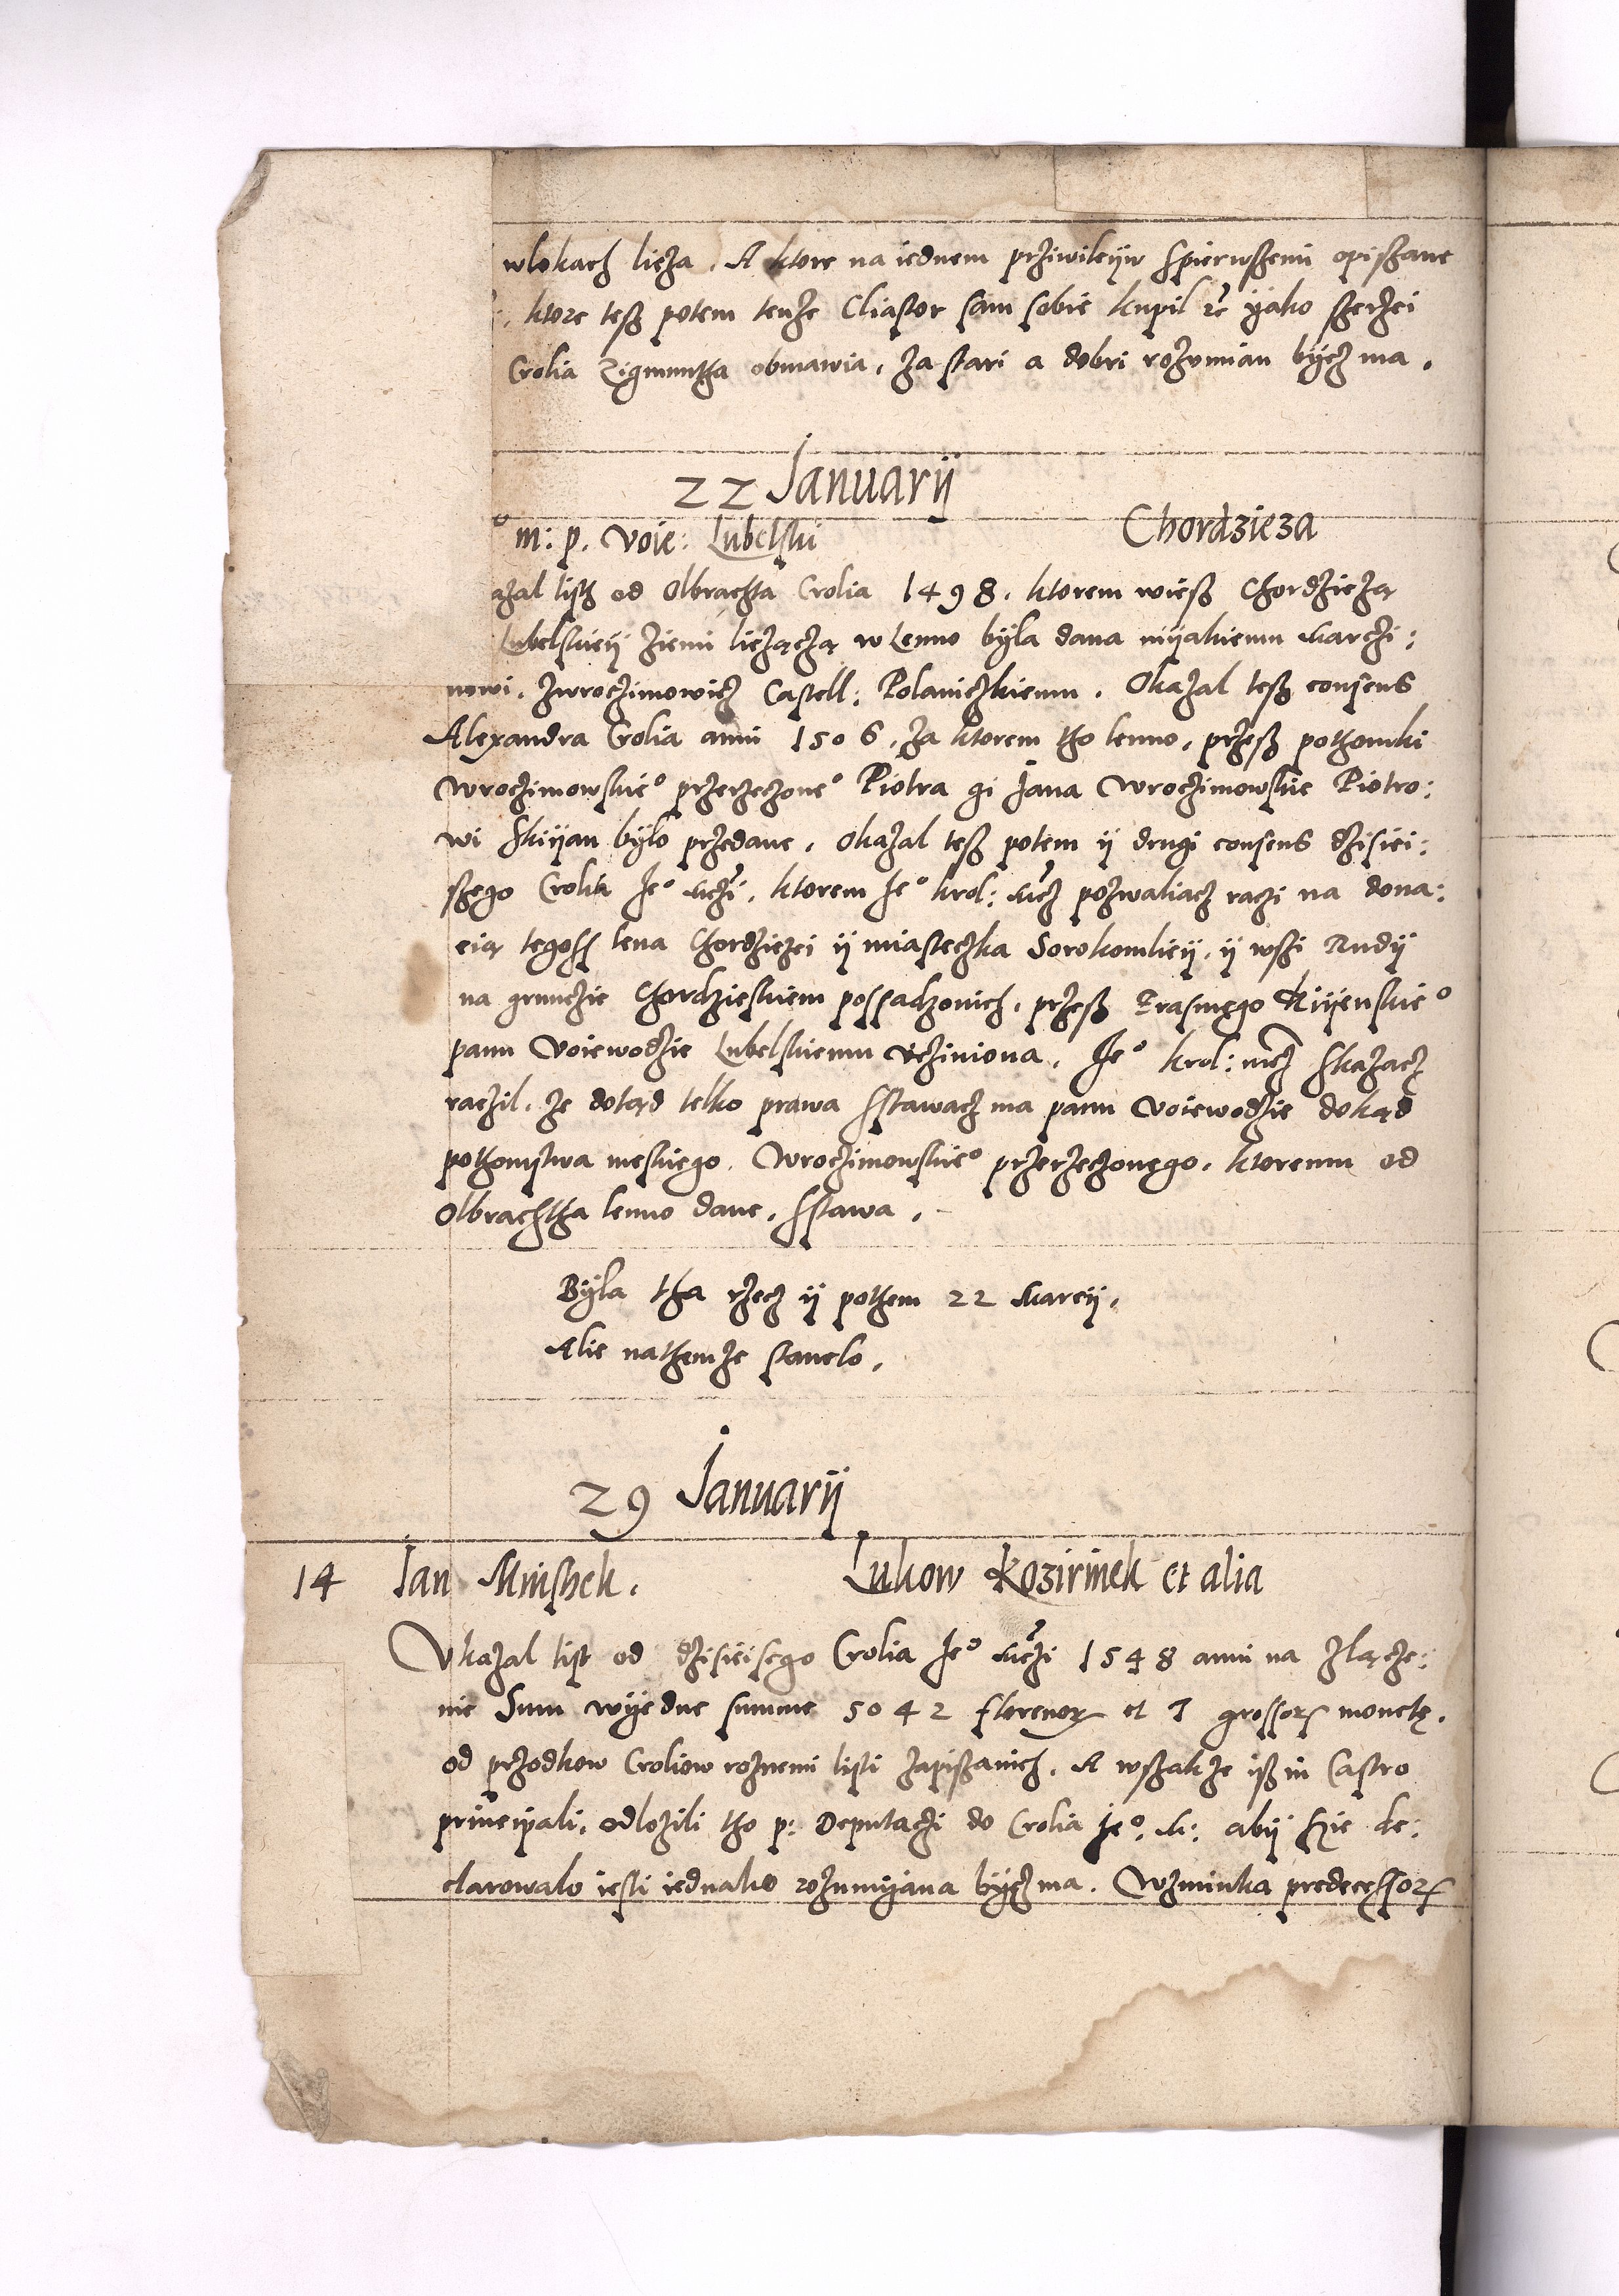 wlokach lieza. A ktore na iednem prziwileiiw spierwszemi opiszane
ktore tesz potem tenze Cliastor sam sobie kupil etc yako szerzei
Crolia Zigmuntha obmawia, za stari a dobri rozumian bÿcz ma.
22 Januarij
m: p. Voie: Lubelski Chordzieza
azal listh od Olbrachta Crolia 1498. ktorem wiesz Chordziezą
Lubelskieÿ ziemi liezączą w Lenno bÿla dana nÿakiemu Marczi:
nowi. Zwroczimowicz Castell: Polaniczkiemu. Okazal tesz consens
Alexandra Crolia anni 1506, za ktorem tho lenno, przesz pothomki
Wroczimowskie° przerzeczone° Piotra gi Jana Wroczimowskie Piotro:
wi Skiÿan bÿlo przedane, okazal tesz potem ÿ drugi consens dzisiei:
szego Crolia Je° Mczi, ktorem Je° krol: Mcz pozwaliacz raczi na dona:
cią tegoss lena Chordziezei ÿ miasteczka Sorokomlieÿ, ÿ wszi Rudÿ
na grunczie Chordzieskiem possadzonich, przesz Erasmego Kiÿenskie°
panu Voiewodzie Lubelskiemu vcziniona. Je° krol: mcz skazacz
raczil, ze dotąd telko prawa sstawacz ma panu Voiewodzie dokąd
pothomstwa meskiego. Wroczimowskie° przerzeczonego, ktoremu od
Olbrachtha lenno dane, sstawa.
Bÿla tha rzecz ÿ pothem 22 Marcÿ,
Alie nathemze stanelo.
29 Januarij
14 Jan Mnishek. Lukow Kozirinek et alia
Vkazal list od dzisieisego Crolia Je° Mczi 1548 anni na zlącze:
nie Sum wÿedne summe 5042 florenor et 7 grossor monetę.
od przodkow Croliow roznemi listi zapiszanich. A wszakze isz in Castro
principali, odlozili tho p: Deputaczi do Crolia Je°. M: abÿ szie de:
clarowalo iesli iednako rozumÿana bÿcz ma. Wzminka predecessor